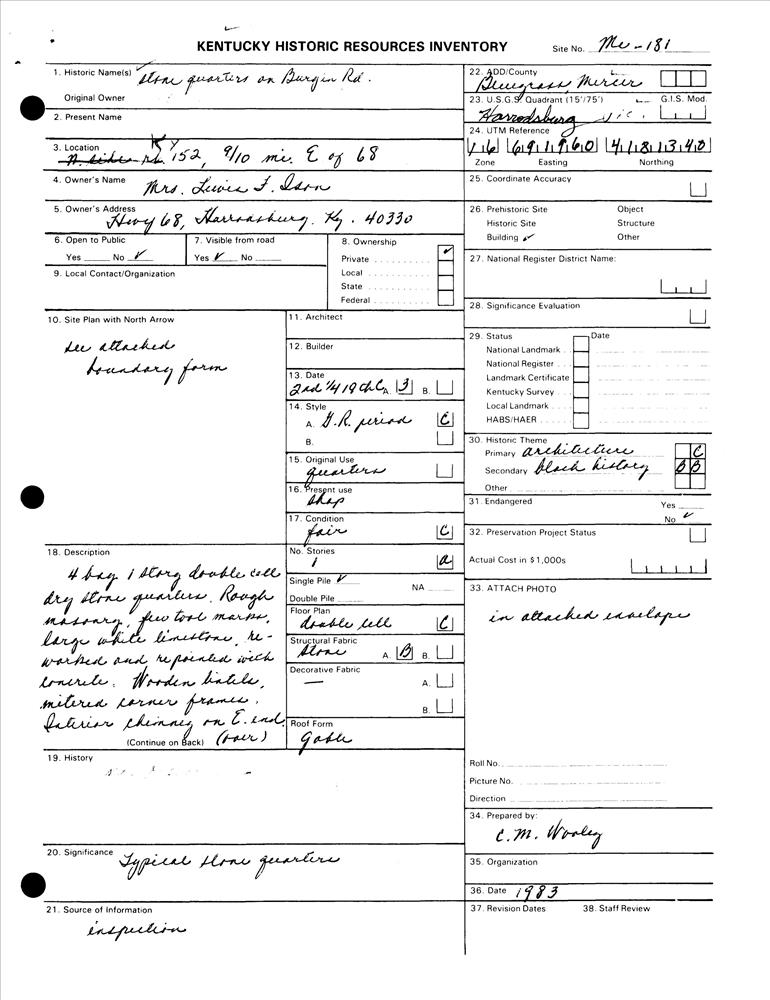 KENTUCKY HISTORIC RESOURCES INVENTORY
Site No. Me-181
1. Historic Name(s) stone quarters on Burgin Rd.
Original Owner
2. Present Name
3. Location KY 152, 9/10 mi. E of 68
4. Owner's Name Mrs. Lewis F. Ison
5. Owner's Address Hwy 68, Harrodsburg, Ky. 40330
6. Open to Public
Yes No ✓
7. Visible from road
Yes ✓ No
8. Ownership
Private ✓
Local
State
Federal
9. Local Contact/Organization
10. Site Plan with North Arrow
see attached
boundary form
11. Architect
12. Builder
13. Date
2nd 1/4 19th C A. 3 B.
14. Style
A. G.R. period C
B.
15. Original Use
quarters
16. Present use
shop
17. Condition
fair C
18. Description
4 bay 1 story double cell
dry stone quarters. Rough
masonry, few tool marks,
large white limestone, re-
worked and repointed with
concrete. Wooden lintels,
mitered corner frames.
Interior chimney on E. end.
(Continue on Back) (over)
No. Stories
1 a
Single Pile ✓ NA
Double Pile
Floor Plan
double cell C
Structural Fabric
stone A. B B.
Decorative Fabric
— A.
B.
Roof Form
Gable
19. History
20. Significance Typical stone quarters
21. Source of Information
inspection
22. ADD/County
Bluegrass, Mercer
23. U.S.G.S. Quadrant (15'/75') G.I.S. Mod.
Harrodsburg
24. UTM Reference
16 691960 4181340
Zone Easting Northing
25. Coordinate Accuracy
26. Prehistoric Site Object
Historic Site Structure
Building ✓ Other
27. National Register District Name:
28. Significance Evaluation
29. Status Date
National Landmark
National Register
Landmark Certificate
Kentucky Survey
Local Landmark
HABS/HAER
30. Historic Theme
Primary architecture C
Secondary black history B B
Other
31. Endangered Yes
No ✓
32. Preservation Project Status
Actual Cost in $1,000s
33. ATTACH PHOTO
in attached envelope
Roll No.
Picture No.
Direction
34. Prepared by:
C. M. Wooley
35. Organization
36. Date 1983
37. Revision Dates 38. Staff Review